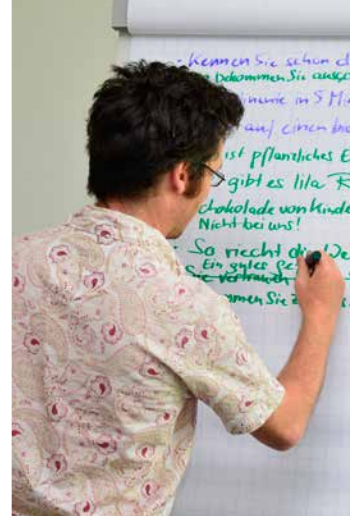 - Kennen Sie schon d
bekommen Sie
in 5 Mi
auf einen
ist pflanzliches E
gibt es lila
chokolade von Kinde
Nicht bei uns!
- So riecht die We
Ein gutes Ge
Sie vertrauen
mmen Sie